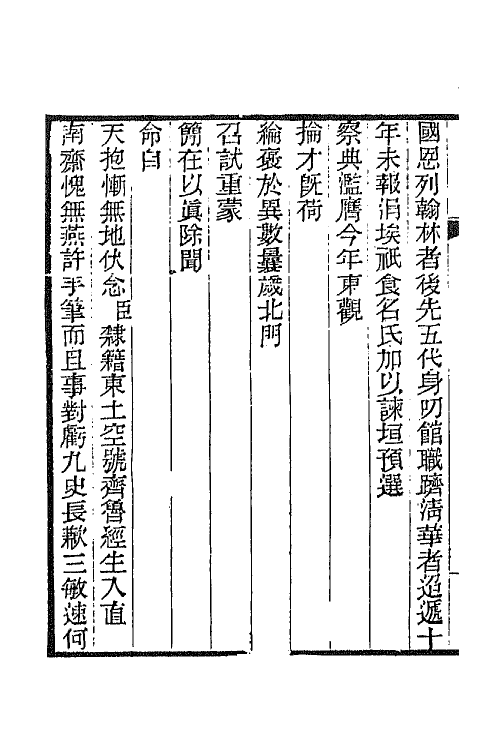 國恩列翰林者後先五代身叨館職躋淸華者迢遞十
年未報涓埃祇食名氏加以諫垣預選
察典濫膺今年東觀
掄才旣荷
綸褒於異數曩歲北門
召試重蒙
簡在以眞除聞
命自
天抱慚無地伏念臣隸籍東土空號齊魯經生入直
南齋愧無燕許手筆而且事對虧九史長歉三敏速何